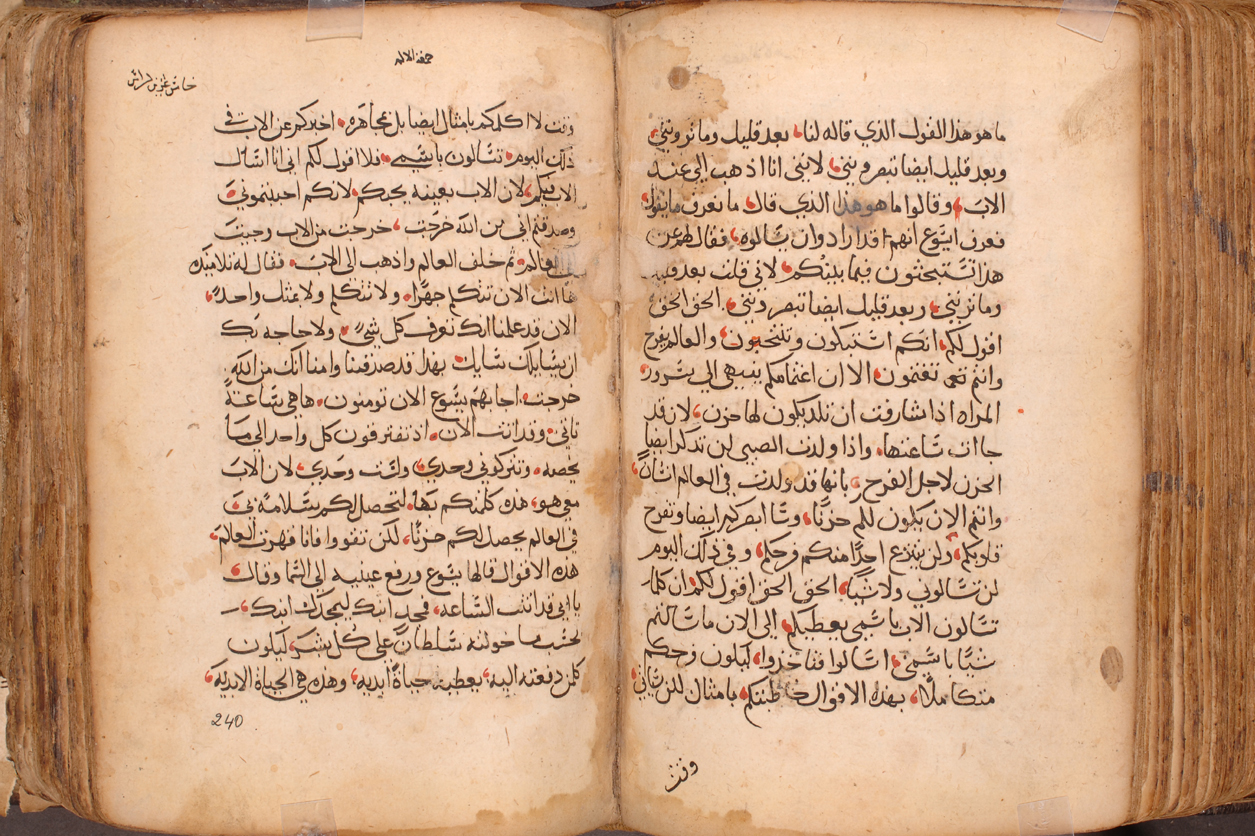 ما هو هذا القول الذي قاله لنا بعد قليل وما ترونني
وبعد قليل ايضا تبصرونني لانني انا اذهب الي عند
الاب وقالوا ما هو هذا الذي قال ما نعرف ما يقول
فعرف ايسوع انهم قد ارادوا ان يسالوه فقال لهم عن
هذا تستبحثون فيما بينكم لاني قلت بعد قليل
وما ترنني وبعد قليل ايضا تبصرونني الحق الحق
اقول لكم انكم استبكون وتنتحبون والعالم يفرح
وانتم تغتمون الا ان اغتمامكم ينتهي الي سرور
المراه اذا شارفت ان تلد يكون لها حزن لان قد
جاات ساعتها واذا ولدت الصبي لن تذكر ايضا
الحزن لاجل الفرح بانها قد ولدت في العالم انسان
وانتم الان يكون لكم حزنا وسا ابصركم ايضا وتفرح
قلوبكم ولن ينتزع احدا منكم فرحكم وفي ذلك اليوم
لن تسالوني ولا شيا الحق الحق اقول لكم ان كلما
تسالون الاب باسمي يعطيكم الي الان ما سالتم
شيا باسمي اسالوا فتاخذوا ليكون فرحكم
متكاملا بهذه الاقوال خاطبتكم بامثال لكن ساتي
وقت
جمعة الالام
وقت لا اكلمكم بامثال ايضا بل مجاهره اخبركم عن الاب في
ذلك اليوم تسالون باسمي فلا اقول لكم اني انا اسال
الاب فيكم لان الاب بعينه يحبكم لانكم احببتموني
وصدقتم اني من الله خرجت خرجت من الاب وجيت
العالم ثم خلف العالم واذهب الي الاب فقال له تلاميذه
ها انت الان تتكلم جهرا ولا تتكلم ولا بمثل واحد
الان قد علمنا انك تعرف كل شي ولا حاجه بك
ان يسايلك سايل بهذا قد صدقنا وامنا انك من الله
خرجت اجابهم يسوع الان تومنون ها هي ساعة
تاتي وقد اتت الان اذ تفترقون كل واحد الي ما
يخصه وتتركوني وحدي ولست وحدي لان الاب
معي هو هذه كلمتكم بها لتحصل لكم سلامة في
في العالم يحصل لكم حزنا لكن تقووا فانا قهرت العالم
هذه الاقوال قالها يسوع ورفع عينيه الي السما وقال
يا ابي قد اتت الساعه فمجد ابنك ليمجدك ابنك
بحسب ما خولته سلطان علي كل بشر ليكون
كلمن دفعته اليه يعطيه حياة ابديه وهذه هي الحياة الابديه
240